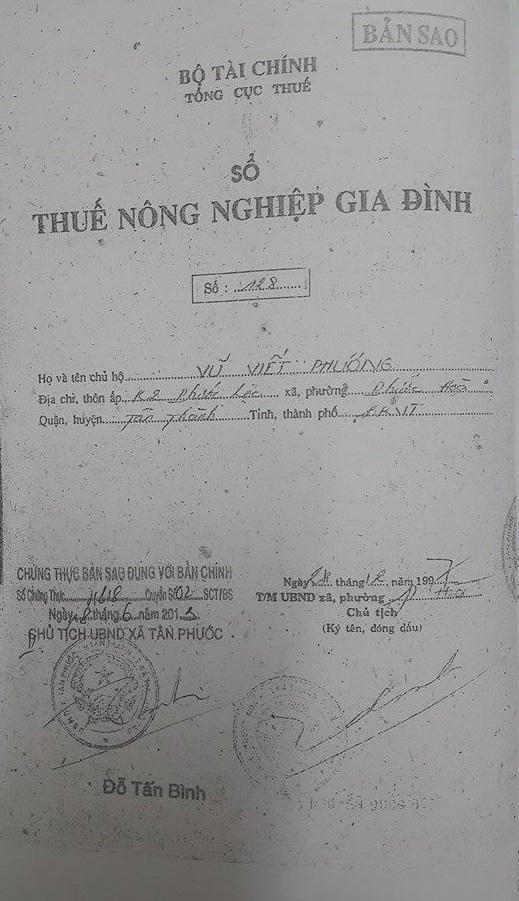 BẢN SAO
BỘ TÀI CHÍNH
TỔNG CỤC THUẾ
SỔ
THUẾ NÔNG NGHIỆP GIA ĐÌNH
Số : 128
Họ và tên chủ hộ VŨ VIẾT PHƯỚNG
Địa chỉ, thôn ấp K2 Phước Lộc xã, phường Phước Hoà
Quận, huyện Tân Thành Tỉnh, thành phố BRVT
CHỨNG THỰC BẢN SAO ĐÚNG VỚI BẢN CHÍNH
Số Chứng Thực Quyển Số 02 SCT/BS
Ngày 8 tháng 6 năm 2013
CHỦ TỊCH UBND XÃ TÂN PHƯỚC
Đỗ Tấn Bình
Ngày tháng 12 năm 1997
T/M UBND xã, phường P Hoà
Chủ tịch
(Ký tên, đóng dấu)